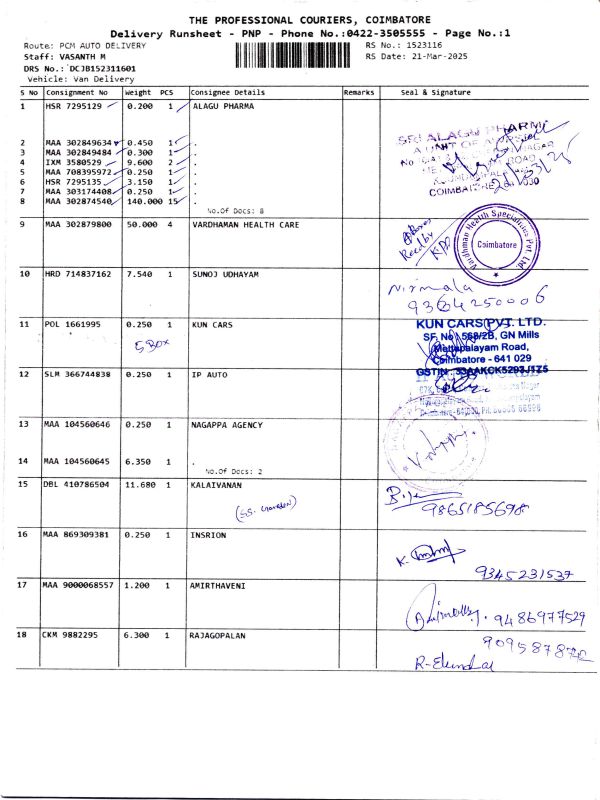 THE PROFESSIONAL COURIERS, COIMBATORE
Delivery Runsheet - PNP - Phone No.:0422-3505555 - Page No.:1
Route: PCM AUTO DELIVERY
RS No.: 1523116
Staff: VASANTH M
RS Date: 21-Mar-2025
DRS No.: DCJB152311601
Vehicle: Van Delivery
S No Consignment No Weight PCS Consignee Details Remarks Seal & Signature
1 HSR 7295129 0.200 1 ALAGU PHARMA
2 MAA 302849634 0.450 1 .
3 MAA 302849484 0.300 1 .
4 IXM 3580529 9.600 2 .
5 MAA 708395972 0.250 1 .
6 HSR 7295135 3.150 1 .
7 MAA 303174408 0.250 1 .
8 MAA 302874540 140.000 15 .
No.Of Docs: 8
SRI ALAGU PHARMA
A UNIT OF
COIMBATORE
9 MAA 302879800 50.000 4 VARDHAMAN HEALTH CARE
Vardhman Health Specialities Pvt. Ltd.
Coimbatore
10 HRD 714837162 7.540 1 SUNOJ UDHAYAM
Nirmala
9364250006
11 POL 1661995 0.250 1 KUN CARS
5 BOX
KUN CARS PVT. LTD.
SF. No. 568/2B, GN Mills
Mettupalayam Road,
Coimbatore - 641 029
GSTIN : 33AAKCK5293J1Z5
12 SLM 366744838 0.250 1 IP AUTO
13 MAA 104560646 0.250 1 NAGAPPA AGENCY
14 MAA 104560645 6.350 1 .
No.Of Docs: 2
15 DBL 410786504 11.680 1 KALAIVANAN
9865185698
16 MAA 869309381 0.250 1 INSRION
9345231537
17 MAA 9000068557 1.200 1 AMIRTHAVENI
9486977529
18 CKM 9882295 6.300 1 RAJAGOPALAN